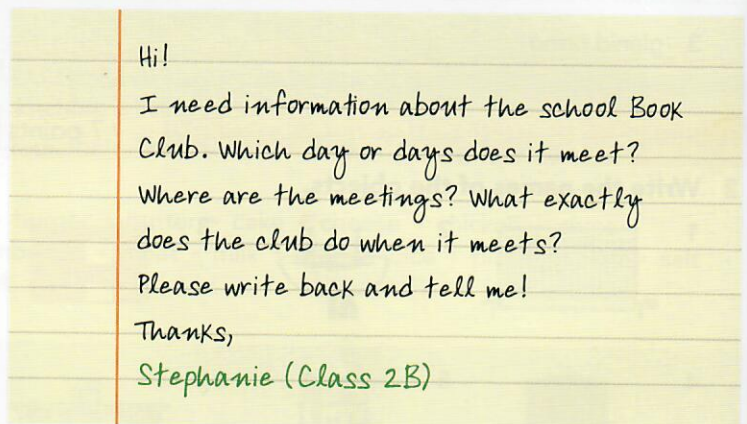 Hi!
I need information about the school Book
Club. Which day or days does it meet?
Where are the meetings? What exactly
does the club do when it meets?
Please write back and tell me!
Thanks,
Stephanie (Class 2B)